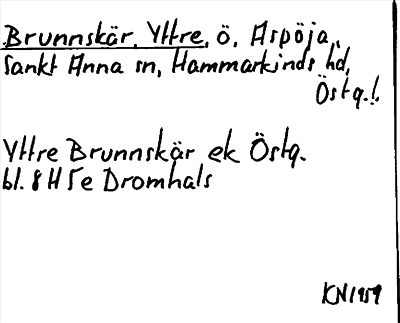 Brunnskär, Yttre, ö, Aspöja,
Sankt Anna sn, Hammarkinds hd,
Östg.!.
Yttre Brunnskär ek Östg.
bl. 8 H 5e Dromhals
KN1959